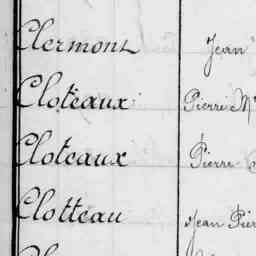 Clermont Jean
Cloteaux Pierre M
Cloteaux Pierre
Clotteau Jean Pier